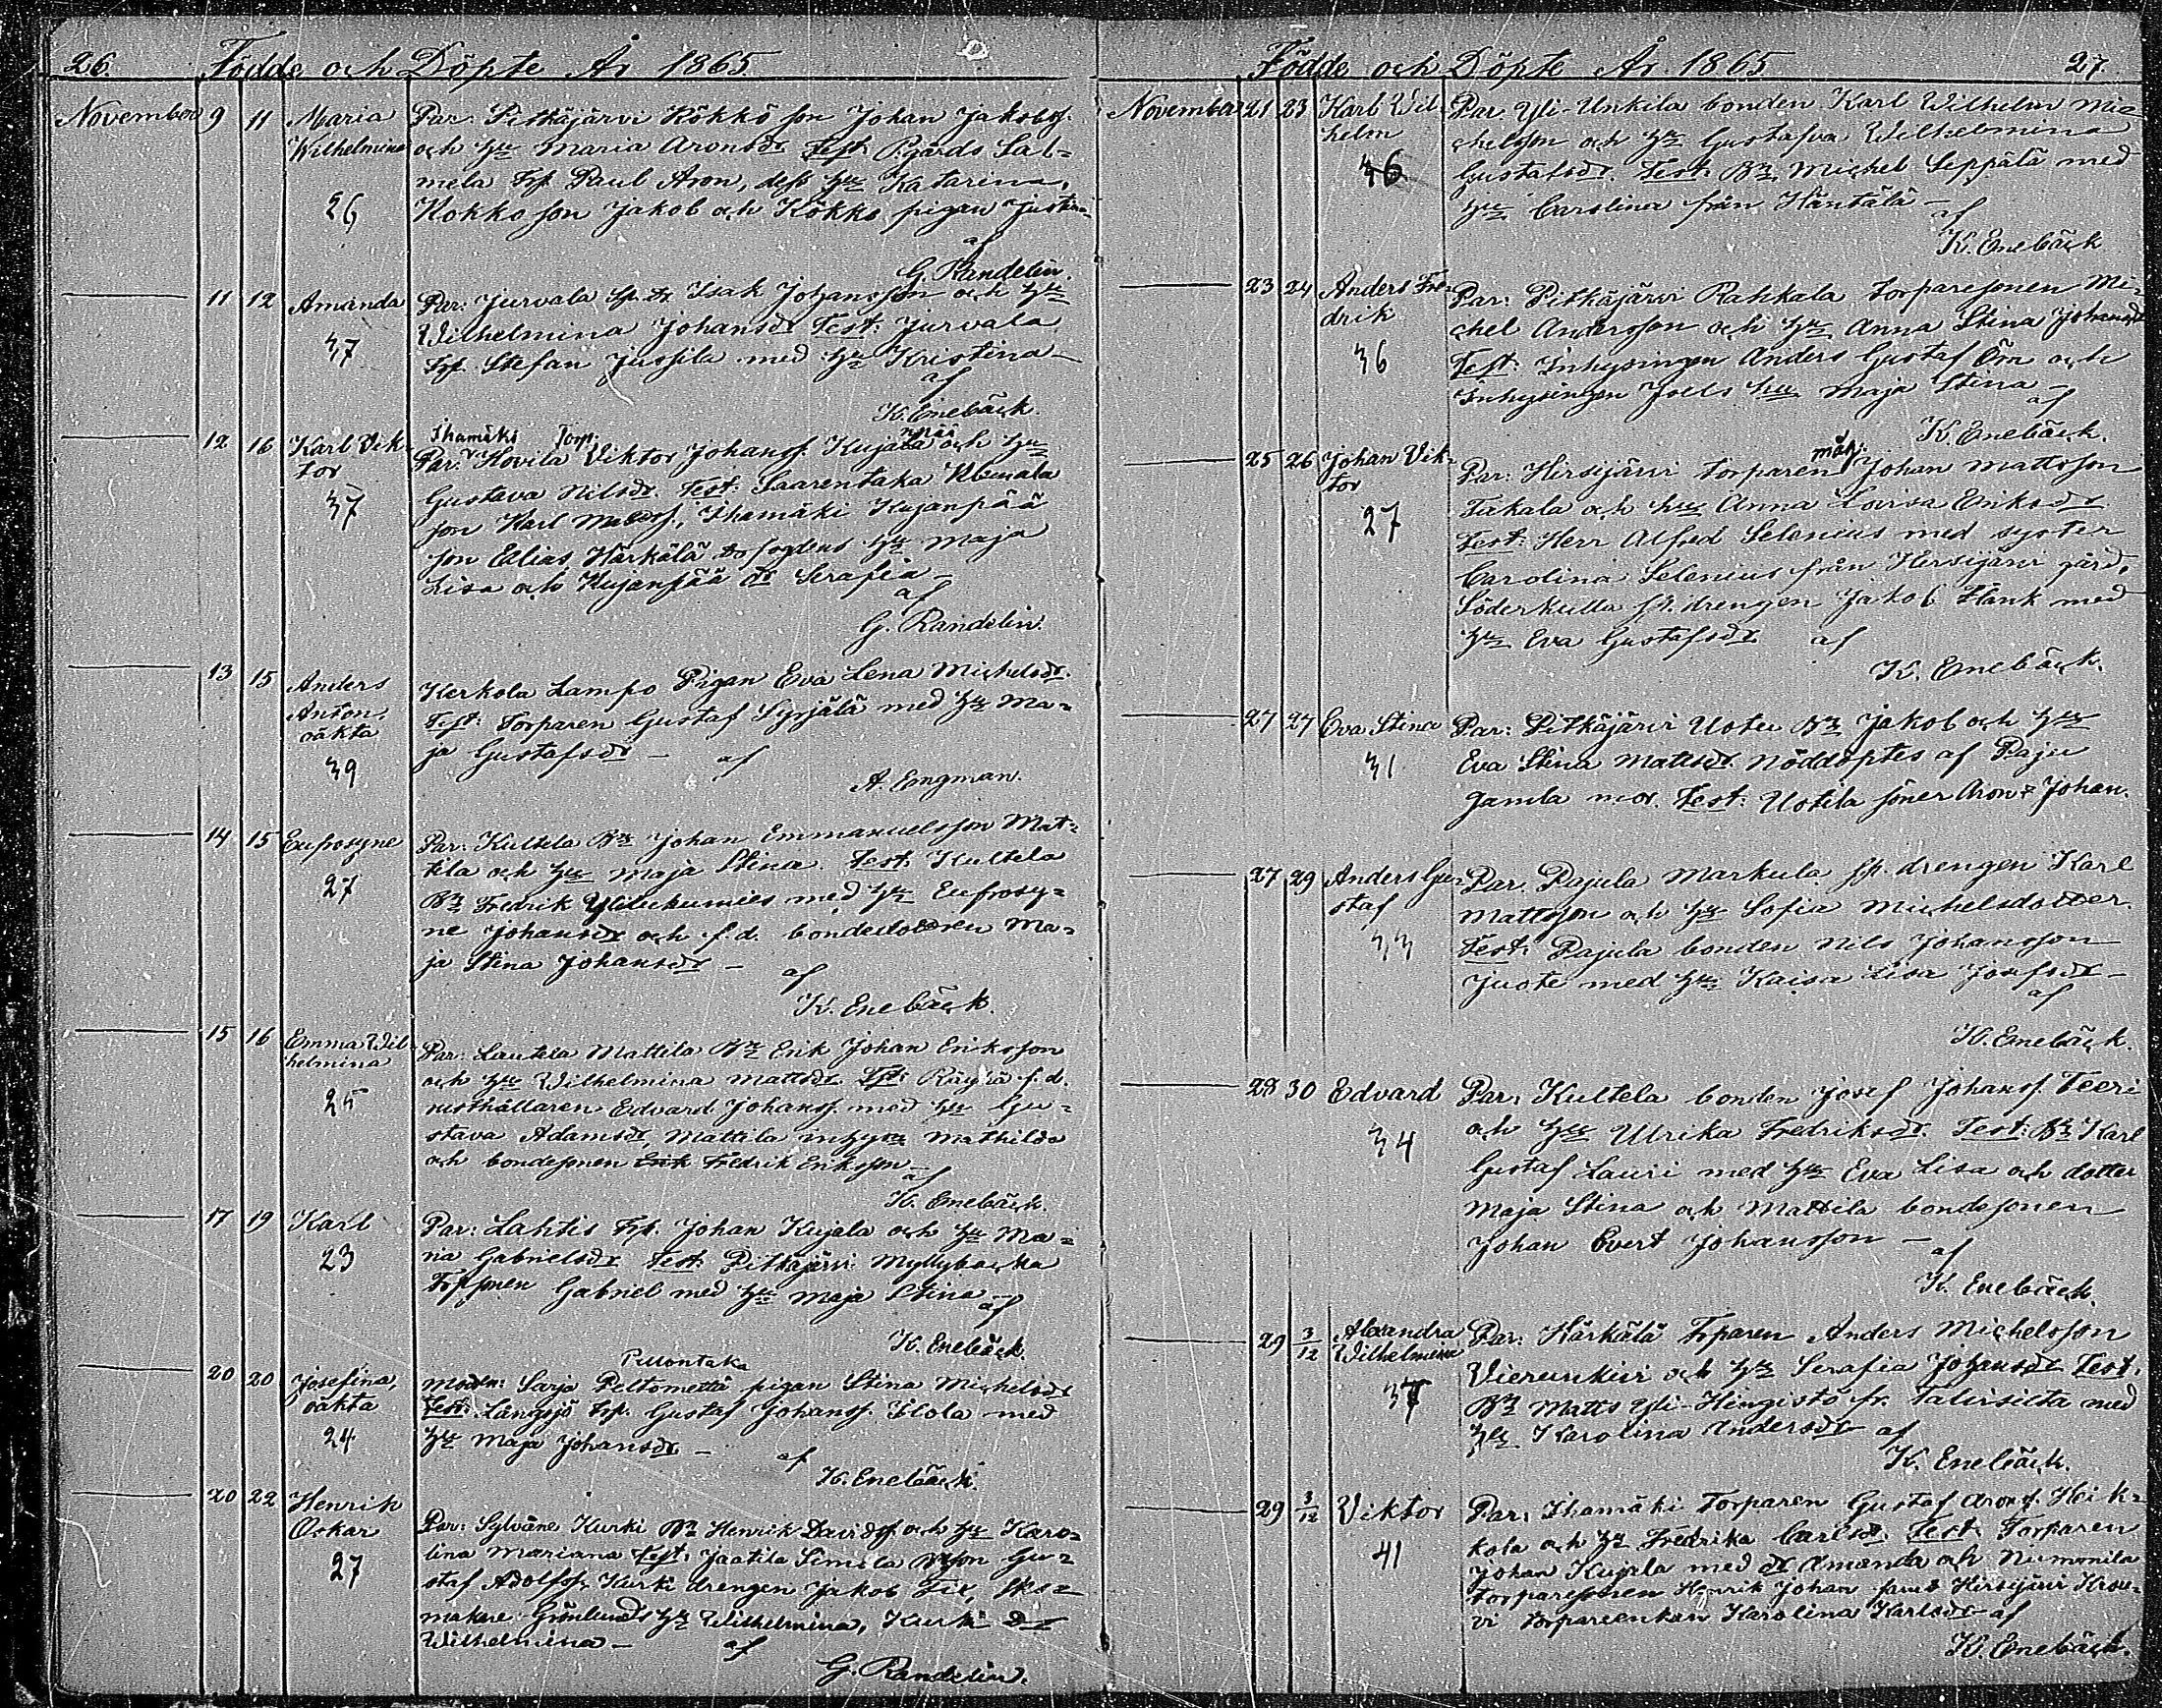 26. Födde och Döpte År 1865.
November 9 11 Maria Par: Pitkäjärvi Kökkö son Johan Jakobss.
Wilhelmina och hu Maria Aronsdr Test: Pgårds Sal=
mela Trp. Paul Aron, dess hu Katarina,
26 Kokko son Jakob och Kökkö pigan Justina
af
G. Randelin.
11 12 Amanda Par: Jurvala Isak Johansson och hu
Wilhelmina Johansdr Test: Jurvala
37 Trp. Stefan Jussila med hu Kristina -
af
K. Enebäck.
Ihamäki Torp. npää
12 16 Karl Vik- Par: Hovila Viktor Johanss. Kujala och hu
tor Gustava Nilsdr. Test: Saarentaka
37 son Karl Ihamäki Kujanpää
son Elias, Härkälä fogdens hu Maja
Lisa och Kujanpää dr Serafia -
af
G. Randelin.
13 15 Anders Kerkola Lampo Pigan Eva Lena Michelsdr.
Anton, Test: Torparen Gustaf Syrjälä med hu Ma=
oäkta ja Gustafsdr - af
39 A. Emgman.
14 15 Eufrosyne Par: Kultela Bn Johan Emmanuelsson Mat=
tila och hu Maja Stina. Test: Kultela
27 Bn Fredrik med hu Eufrosy=
ne Johansdr och f.d. bondedottren Ma=
ja Stina Johansdr - af
K. Enebäck.
15 16 Emma Wil- Par: Lautela Mattila Bn Erik Johan Eriksson
helmina och hu Wilhelmina Mattsdr. Test: f.d.
25 rusthållaren Edvard Johanss. med hu Gu=
stava Adamsdr, Mattila Mathilda
och bondesonen Erik Fredrik Eriksson -
af
K. Enebäck.
17 19 Karl Par: Lahtis Trp. Johan Kujala och hu Ma=
23 ria Gabrielsdr Test: Pitkäjärvi Myllybacka
Trpsonen Gabriel med hu Maja Stina -
af
K. Enebäck.
Pellontaka
20 20 Josefina, Modren: Sarja Peltomettä pigan Stina Michelsdr
oäkta Test: Långsjö Trp. Gustaf Johanss. Ilola med
24 hu Maja Johansdr - af
K. Enebäck.
20 22 Henrik Par: Sylväne Kurki Bn Henrik Davidss. och hu Karo=
Oskar lina Mariana Test: Jaatila Simola Bnson Gu=
27 staf Adolfss. Kurki drengen Jakob sko=
makare Grönlunds hu Wilhelmina, Kurki dr
Wilhelmina - af
G. Randelin.
Födde och Döpte År 1865 27.
November 21 23 Karl Wil- Par: Yli-Unkila bonden Karl Wilhelm Mi=
helm chelsson och hu Gustafva Wilhelmina
46 Gustafsdr. Test: Bn Michel Seppälä med
hu Carolina från Häntälä -
af
K. Enebäck
23 24 Anders Fre- Par: Pitkäjärvi Rahkala torparesonen Mi=
drik chel Andersson och hu Anna Stina Johansdr
36 Test: Inhysingen Anders Gustaf Örn och
Inhysingen Joels hu Maja Stina -
af
K. Enebäck.
måg.
25 26 Johan Vik- Par: Hirsijärvi torparen Johan Mattsson
tor Takala och hu Anna Lovisa Eriksdr
27 Test: Herr Alfred Selenius med syster
Carolina Selenius från Hirsijärvi gård,
Söderkulla sp. drengen Jakob Hank med
hu Eva Gustafsdr af
K. Enebäck.
27 27 Eva Stina Par: Pitkäjärvi Uotu Bn Jakob och hu
31 Eva Stina Mattsdr. nöddöptes af Paju
gamla mor. Test: Uotila söner Aron & Johan.
27 29 Anders Gu- Par: Pajula Markula sp. drengen Karl
staf Mattsson och hu Sofia Michelsdotter.
33 Test: Pajula bonden Nils Johansson
Juote med hu Kaisa Lisa Josefsdr -
af
K. Enebäck.
28 30 Edvard Par: Kultela bonden Josef Johanss. Teeri
34 och hu Ulrika Fredriksdr. Test: Bn Karl
Gustaf Lauri med hu Eva Lisa och dotter
Maja Stina och Mattila bondesonen
Johan Evert Johansson -
af
K. Enebäck.
29 3/12 Alexandra Par: Härkälä Trparen Anders Michelsson
Wilhelmina Vierunkivi och hu Serafia Johansdr Test.
37 Bn Matts Yli-Hingistö fr. Talirsilta med
hu Karolina Andersdr af
K. Enebäck.
29 3/12 Viktor Par: Ihamäki Torparen Gustaf Aronss. Heik=
41 kola och hu Fredrika Carlsdr. Test: Torparen
Johan Kujala med dr Amanda och Nummila
torparesonen Henrik Johan samt Hirsijärvi
torpareenkan Karolina Karlsdr - af
K. Enebäck.